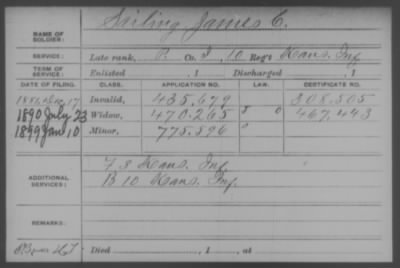 Sailing, James C.
NAME OF SOLDIER:
SERVICE: Late rank, P. Co. I, 10 Reg't Kans. Inf.
TERM OF SERVICE: Enlisted , 1 Discharged , 1
DATE OF FILING. CLASS. APPLICATION NO. LAW. CERTIFICATE NO.
17 Invalid, 435,679 308,505
1890 July 23 Widow, 470,265 467,443
1899 Jan 10 Minor, 775,596 "
ADDITIONAL SERVICES: F 3 Kans. Inf.
B 10 Kans. Inf.
REMARKS:
Died , 1 , at